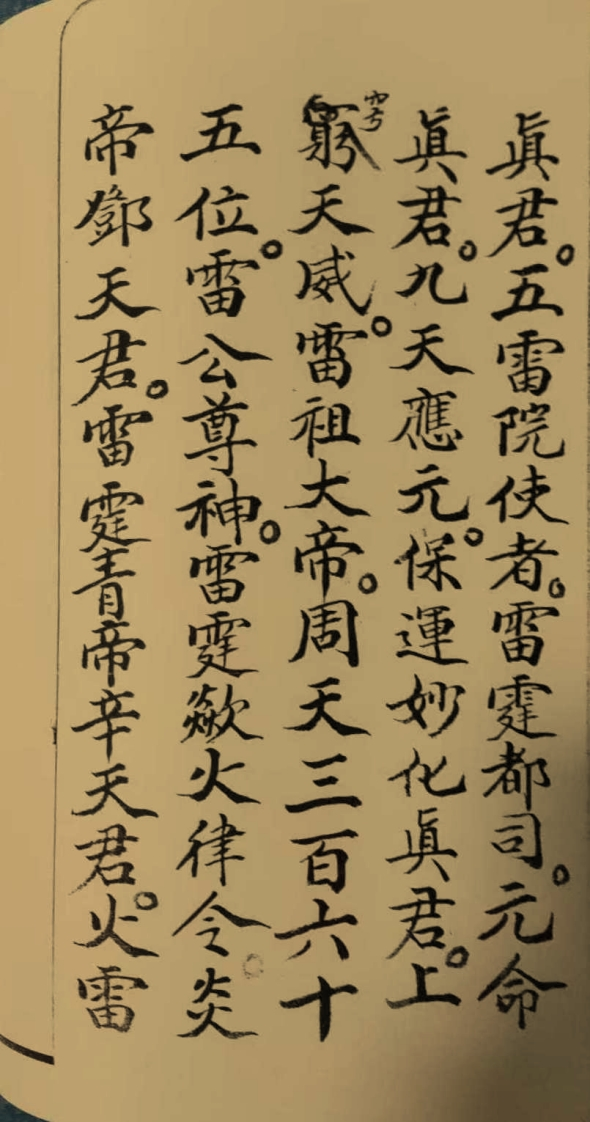 眞君。五雷院使者。雷霆都司。元命
眞君。九天應元。保運妙化眞君。上
窮天威。雷祖大帝。周天三百六十
五位。雷公尊神。雷霆歘火律令。炎
帝鄧天君。雷霆青帝辛天君。火雷